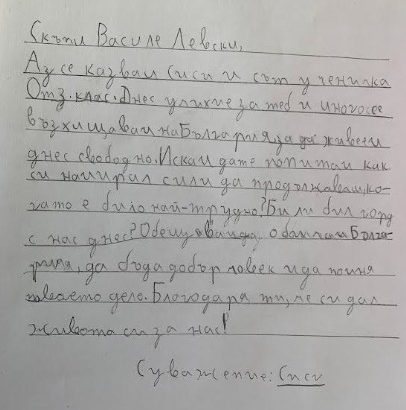 Скъпи Василе Левски,
Аз се казвам Сиси и съм ученичка
От 3. клас. Днес учихме за теб и много се
възхищавам на България за да живеем
днес свободно. Искам да те попитам как
си намирал сили да продължаваш, ко-
гато е било най-трудно? Би ли бил горд
с нас днес? Обещавам да обичам Бълга-
рия, да бъда добър човек и да помня
твоето дело. Благодаря ти, че си дал
живота си за нас!
С уважение: Сиси